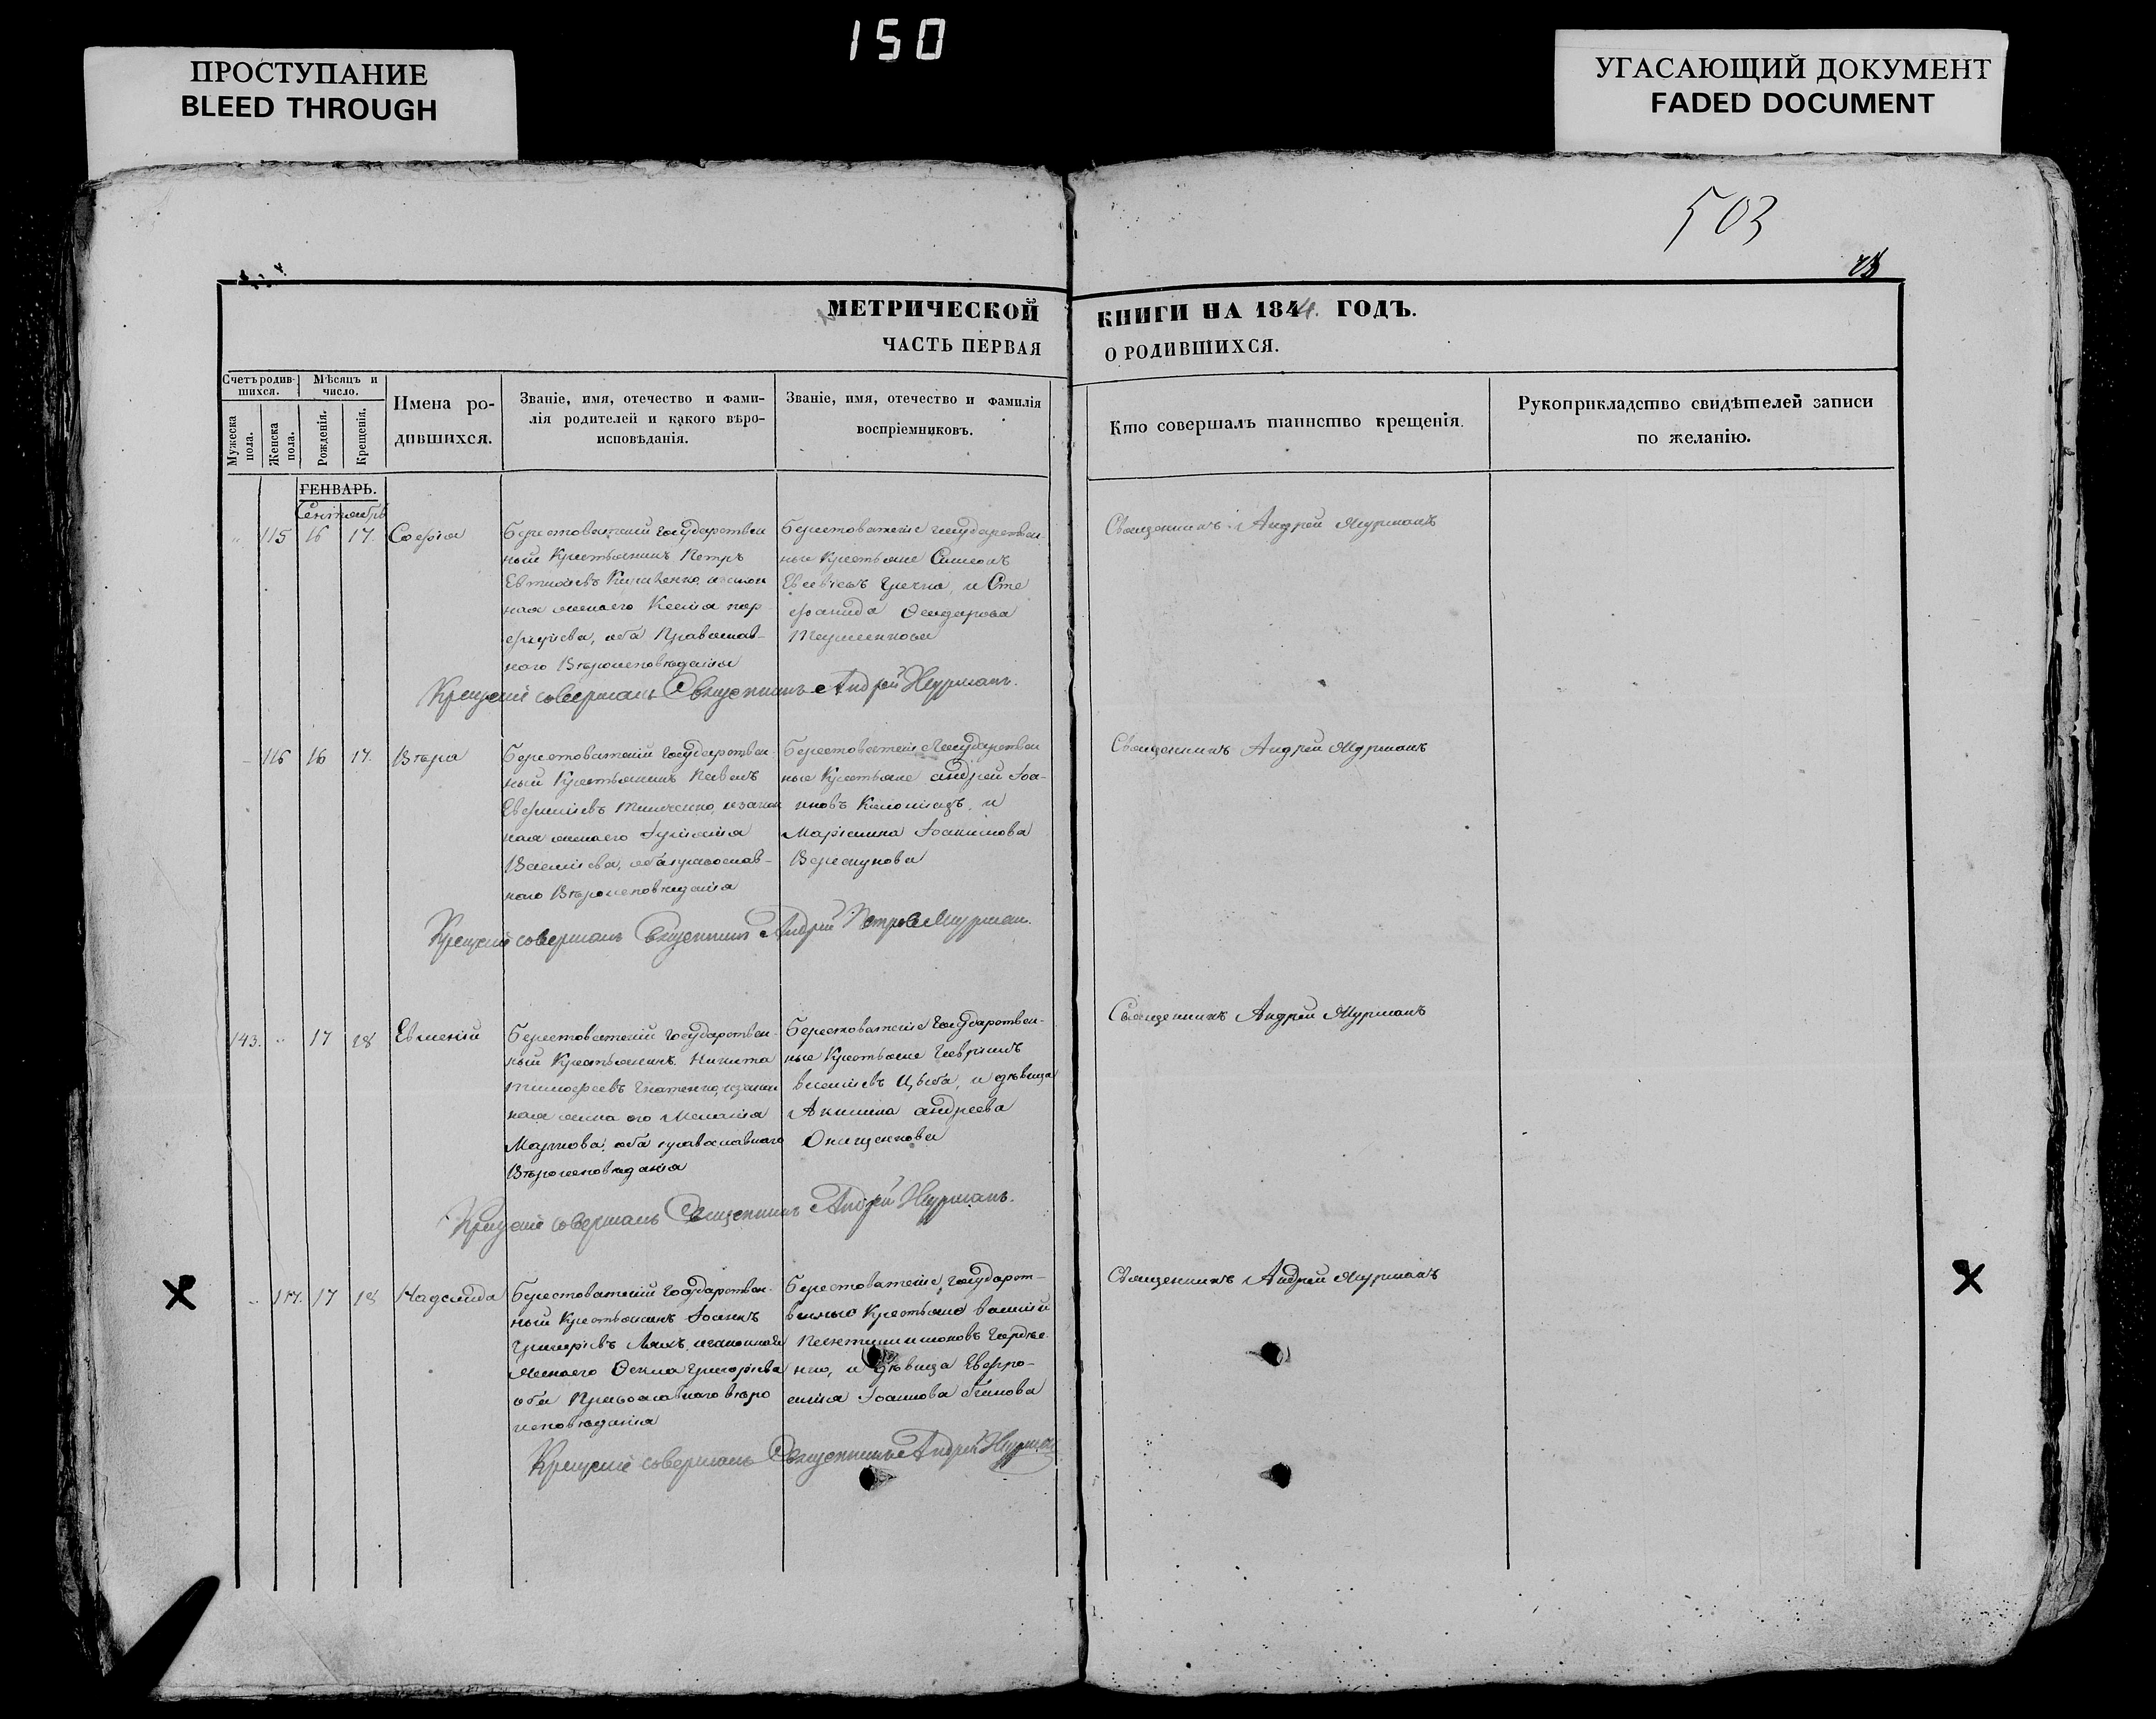 150
ПРОСТУПАНИЕ
BLEED THROUGH
УГАСАЮЩИЙ ДОКУМЕНТ
FADED DOCUMENT
503
МЕТРИЧЕСКОЙ КНИГИ НА 1844. ГОДЪ.
ЧАСТЬ ПЕРВАЯ О РОДИВШИХСЯ.
Счетъ родившихся.
Мужеска пола.
Женска пола.
Мѣсяцъ и число.
Рожденія.
Крещенія.
Имена родившихся.
Званіе, имя, отечество и фамилія родителей и какого вѣроисповѣданія.
Званіе, имя, отечество и фамилія воспріемниковъ.
Кто совершалъ таинство крещенія.
Рукоприкладство свидѣтелей записи по желанію.
ГЕНВАРЬ.
Сентябрь
115 16 17. Софія
Берестоватскій государствен
ный Крестьянинъ Петръ
женаего Ксенія пор
фиріева, оба Православ-
наго Вѣроисповѣданія
Берестоватскіе государствен
ные Крестьяне Симеонъ
Евсевіевъ и Сте
фанида Феодорова
Священникъ Андрей Мурманъ
Крещеніе совершалъ Священникъ Андрей Мурманъ.
116 16 17. Вѣра
Берестоватскій государствен
ный Крестьянинъ Павелъ
Евфиміевъ изакон
ная женаего
Василіева, оба православ-
наго Вѣроисповѣданія
Берестоватскіе Государствен
ные Крестьяне андрей Іоа-
нновъ и
Маріанна Іоакимова
Священникъ Андрей Мурманъ
Крещеніе совершалъ Священникъ Андрей Петровъ Мурман.
143. 17 18 Евменій
Берестоватскій государствен-
ный Крестьянинъ Никита
Тимофеевъ Гнатенко, изакон
ная жена его Меланія
Маркова, оба православнаго
Вѣроисповѣданія
Берестоватскіе Государствен-
ные Крестьяне Гавріилъ
василіевъ Цыба, и дѣвица
Акилина андреева
Онищенкова
Священникъ Андрей Мурманъ
Крещеніе совершалъ Священникъ Андрей Мурманъ.
117. 17 18 Надежда
Берестоватскій государствен-
ный Крестьянинъ Іоаннъ
Григоріевъ Ляхъ, изаконная
женаего Фекла Григоріева
оба Православнаго вѣро
исповѣданія
Берестоватскіе, государст-
венные Крестьяне василій
нко, и дѣвица Евфро-
синія Іоаннова
Священникъ Андрей Мурманъ
Крещеніе совершалъ Священникъ Андрей Мурман